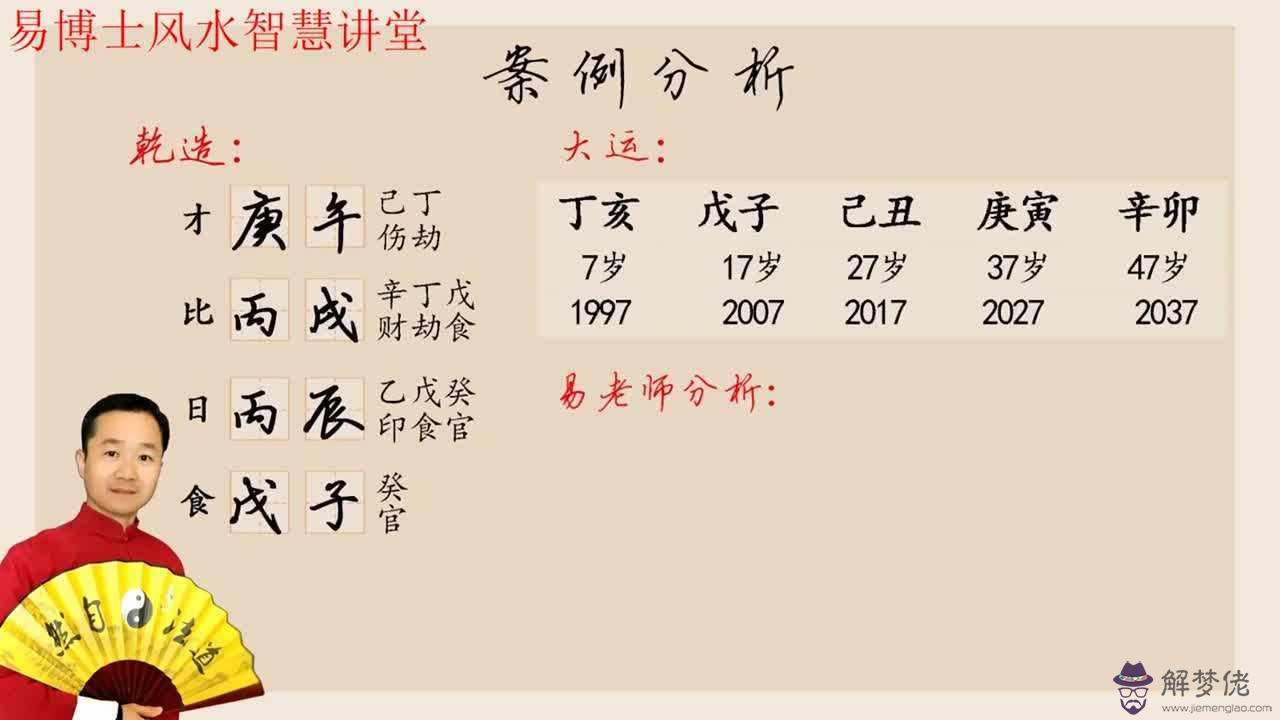 易博士风水智慧讲堂
案例分析
乾造：
才 庚 午 己丁
伤劫
比 丙 戌 辛丁戊
财劫食
日 丙 辰 乙戊癸
印食官
食 戊 子 癸
官
大运：
丁亥 戊子 己丑 庚寅 辛卯
7岁 17岁 27岁 37岁 47岁
1997 2007 2017 2027 2037
易老师分析：
然自法道
解梦佬
www.jiemenglao.com